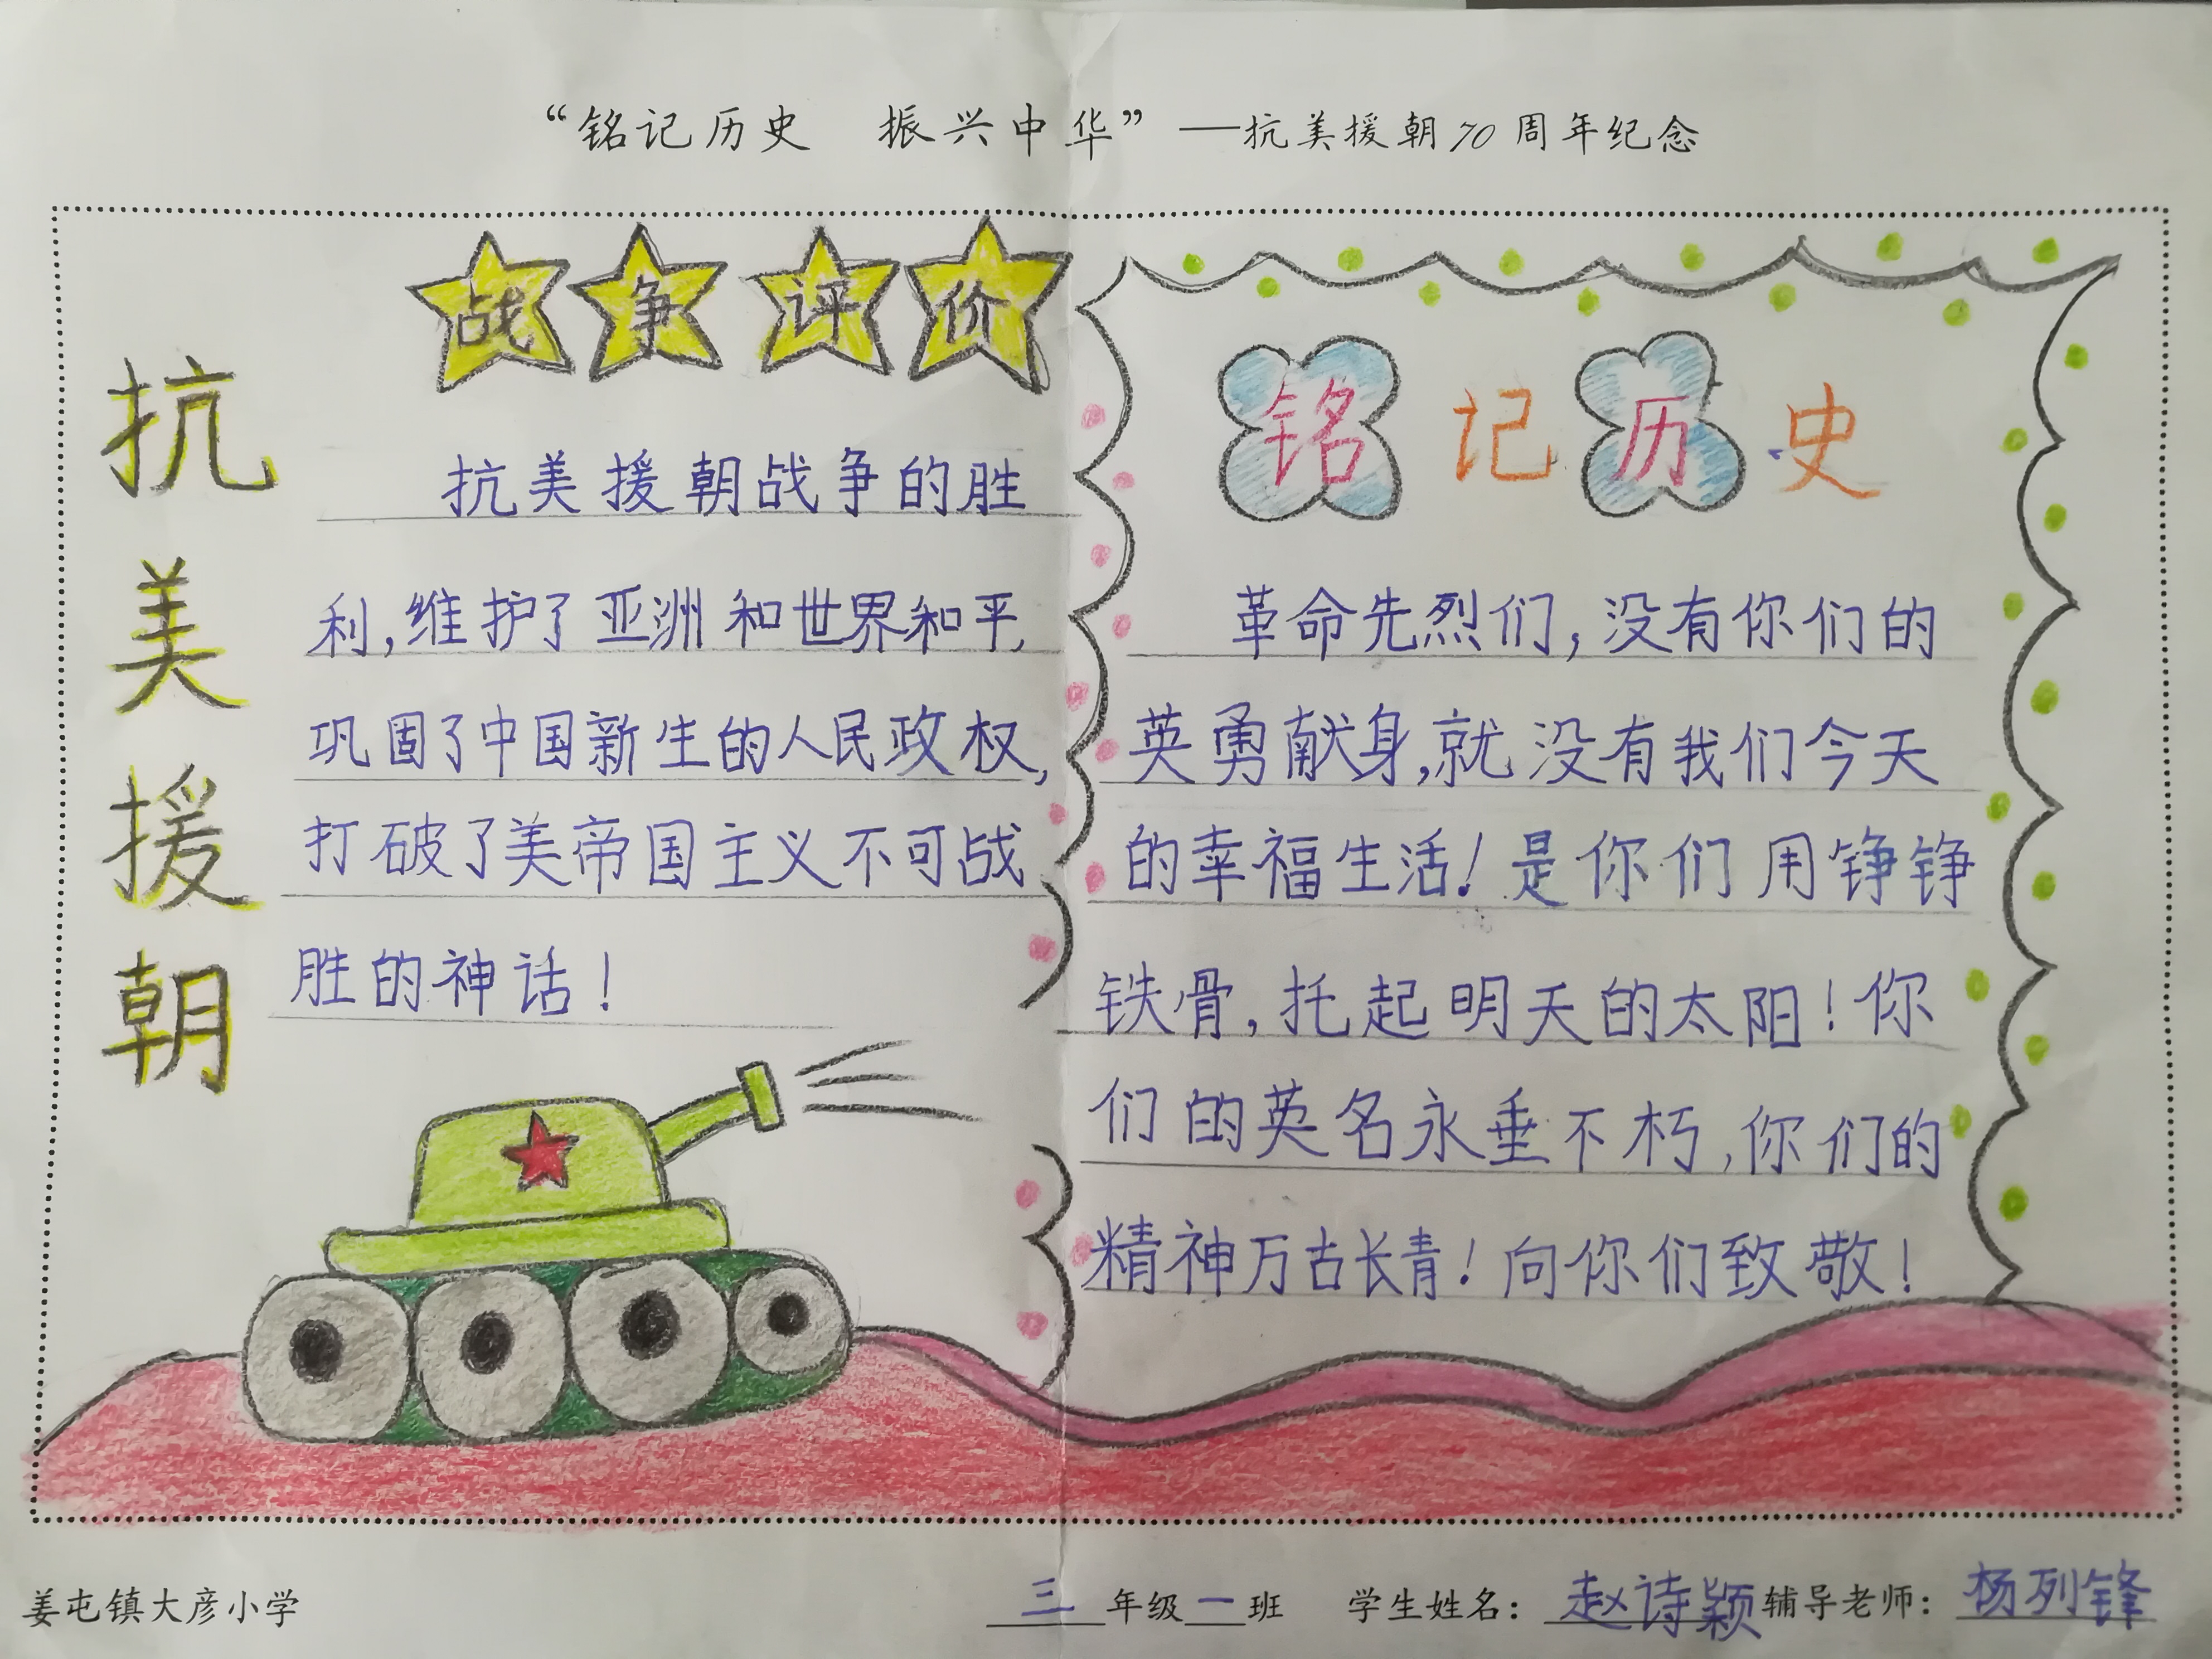 “铭记历史　振兴中华”——抗美援朝70周年纪念
抗美援朝
战争评价
抗美援朝战争的胜
利,维护了亚洲和世界和平,
巩固了中国新生的人民政权,
打破了美帝国主义不可战
胜的神话!
铭记历史
革命先烈们,没有你们的
英勇献身,就没有我们今天
的幸福生活!是你们用铮铮
铁骨,托起明天的太阳!你
们的英名永垂不朽,你们的
精神万古长青!向你们致敬!
姜屯镇大彦小学　三年级一班　学生姓名：赵诗颖 辅导老师：杨列锋